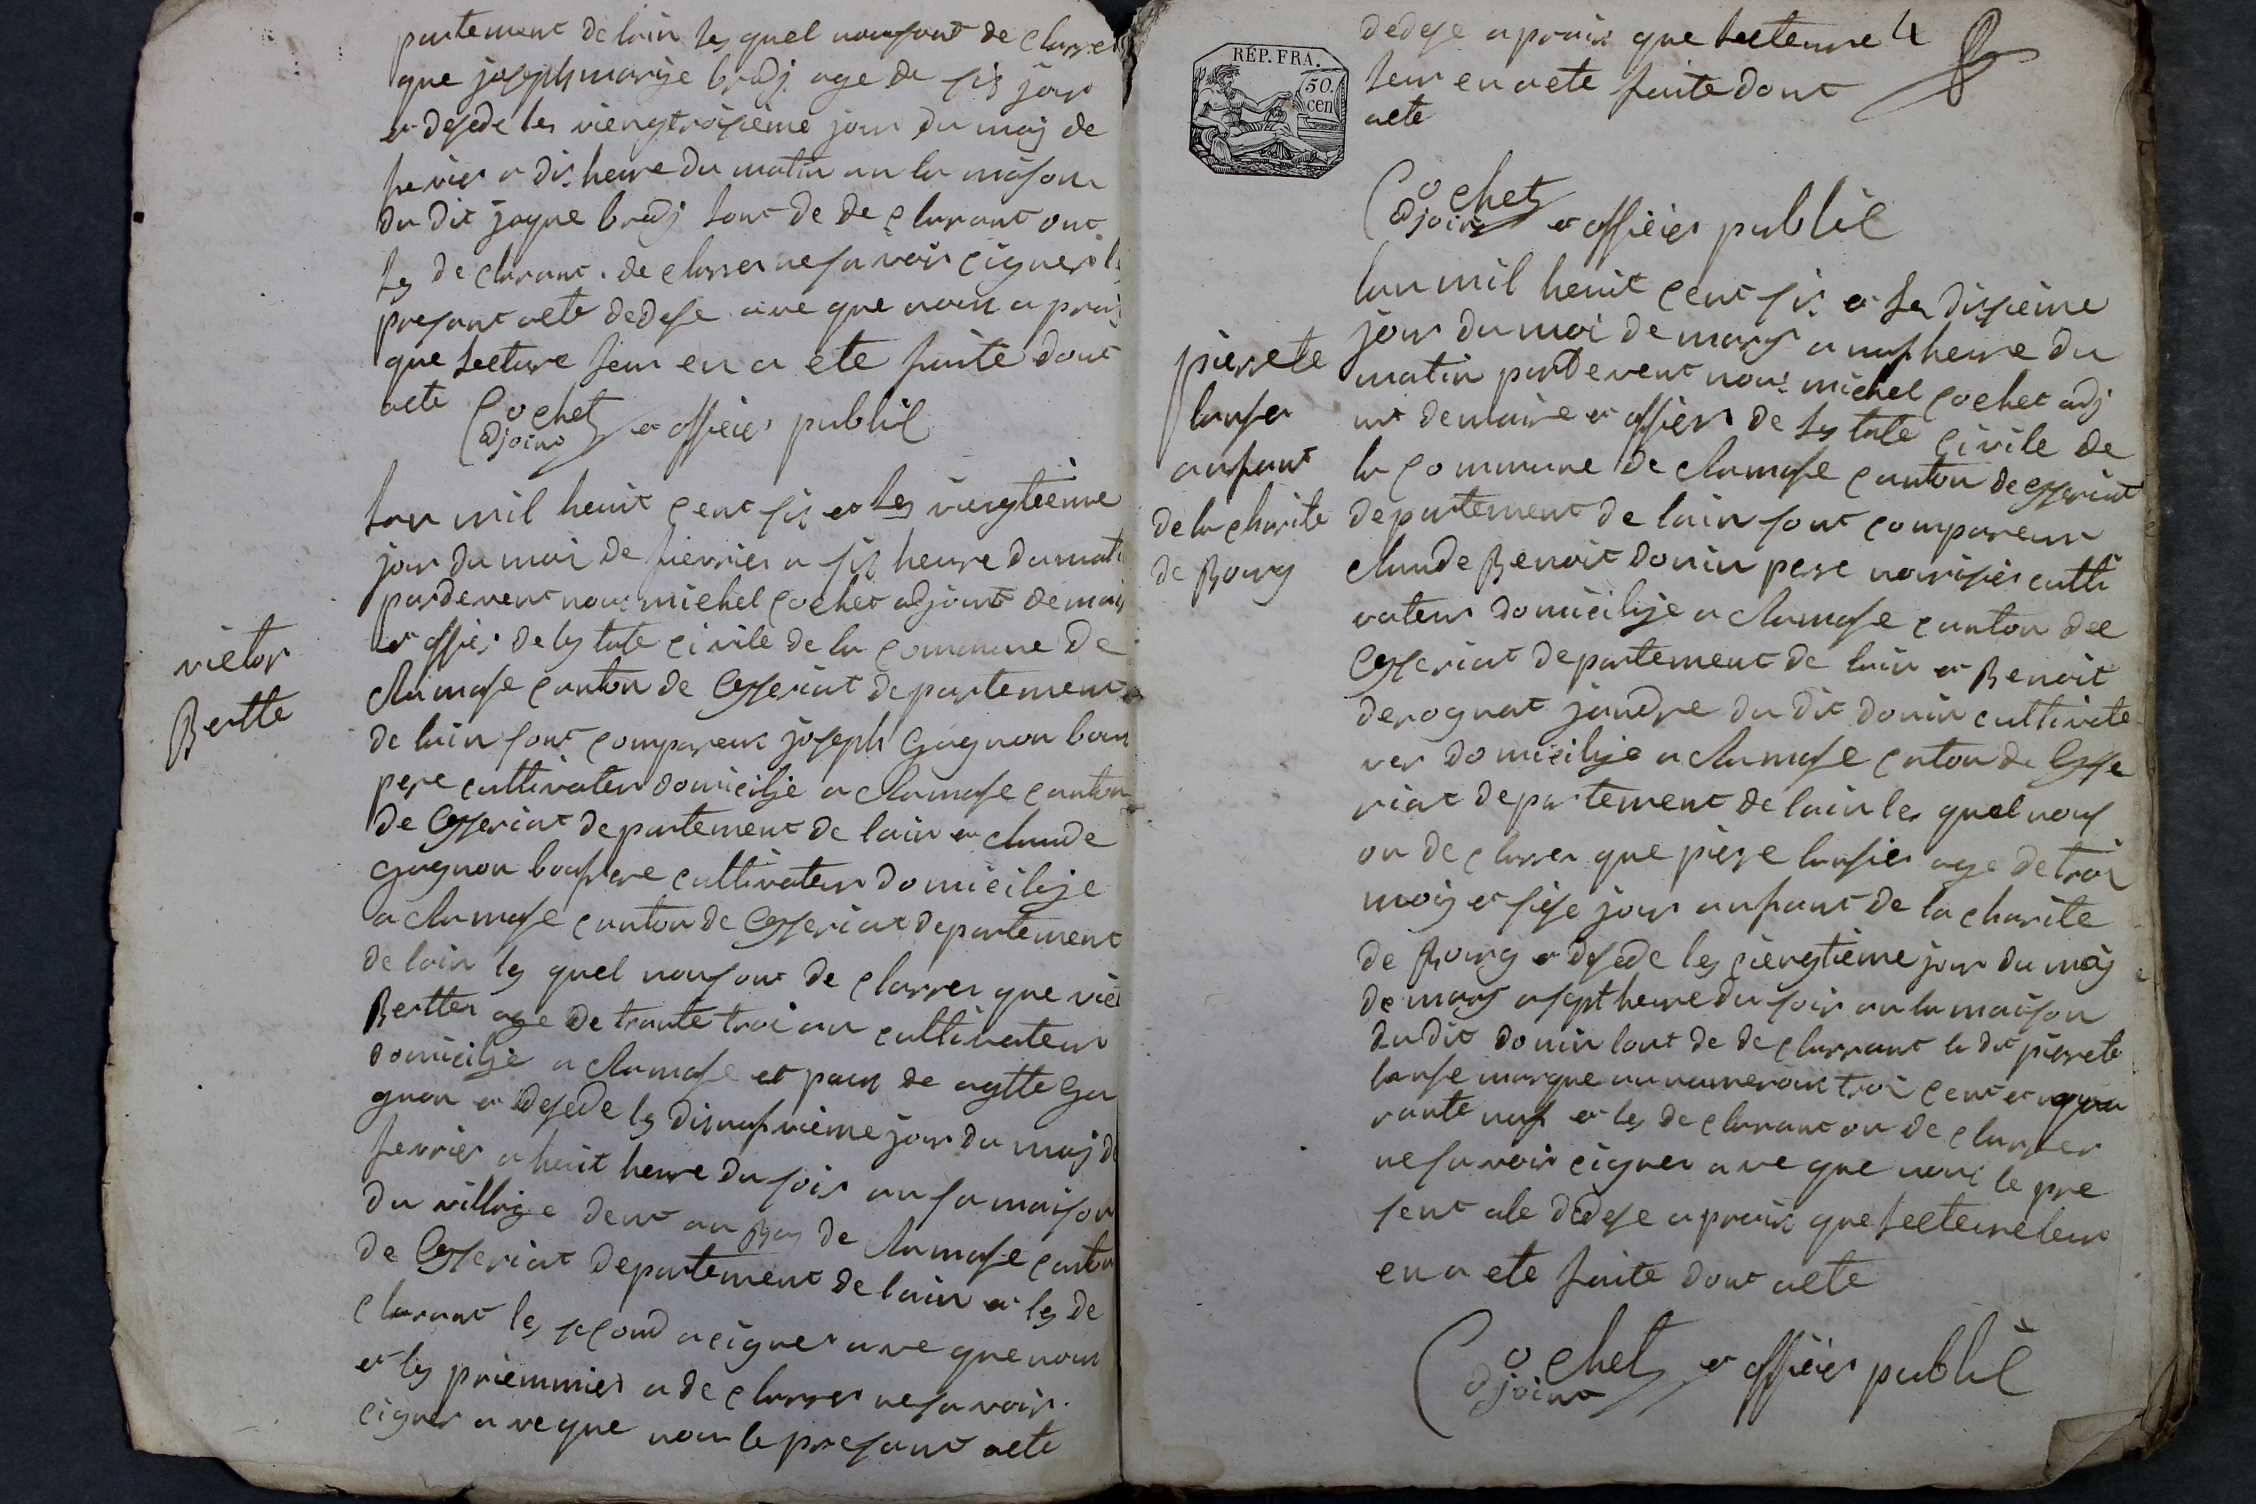 partement de lain les quel nous ont de clarrer
que joseph marije bradj age de sis jour
et desede les viengtroisieme jour du moij de
fevier a dis heure du matin an la maison
du dit jaque bradj lont de de clarant ont
les de clarant de clarrer ne savoir cigner le
presant acte dedese ave que nous a prais
que lecture leur en a ete faite dont
acte Cochet
adjoint et officier publil
lan mil heuit cent sis et les viengtieme
jour du moi de fievrier a sis heure du mati
pardevent nous michel cochet adjoint de mair
et offier de les tate civile de la commune de
victor
Bertte
Ramase canton de Ceyseriat departement
de lain sont compareux joseph Gagnon bau
pere cultivateur domicilje a Ramase canton
de Ceyseriat departement de lain et claude
Gagnon baufrere cultivateur domicilije
a Ramase canton de Ceyseriat departement
de lain les quel nous ont de clarrer que vic
Bertter age de trante troi an cultivateur
domicilje a Ramase et paux de agtte Ga
gnon et desede les disnafvieme jour du moij de
fevrier a heuit heure du soir an sa maison
du village dent au Bas de Ramase canton
de Ceyseriat departement de lain et les de
clarant les second a cigner ave que nous
et les priemmier a de clarrer ne savoir
cigner a veque nous le presant acte
RÉP. FRA.
50.
cen
dedese a prais que lecteure 4
leur en a ete faite dont
acte
Cochet
adjoint et officier publil
pierrete
lanser
anfant
de la charite
de Bourg
lan mil heuit cent sis et les disieme
jour du moi de mars a naf heure du
matin pardevent nous michel cochet adj
int de maire et offier de les tate civile de
la commune de Ramase canton de Ceyseriat
departement de lain sont compareux
claude Benoit donin pere nourisier culti
vateur domicilije a Ramase canton de
Ceyseriat departement de lain et Benoit
derognat jandre du dit donin cultivate
ver domicilije a Ramase canton de Ceyse
riat departement de lain les quel nous
on de clarrer que pierre lansier age de troi
moij et sese jour anfant de la charite
de Bourg et desede les ciengtieme jour du moij
de mars a sept heure du soir an la maison
du dit donin lont de de clarrant le dit pierrete
lanse marque au numeroux troi cent et qua
rante naf et les de clarant on de clarrer
ne savoir cigner a ve que nous le pre
sent ate dedese a prais que lecteure leur
en a ete faite dont acte
Cochet
adjoint et officier publil